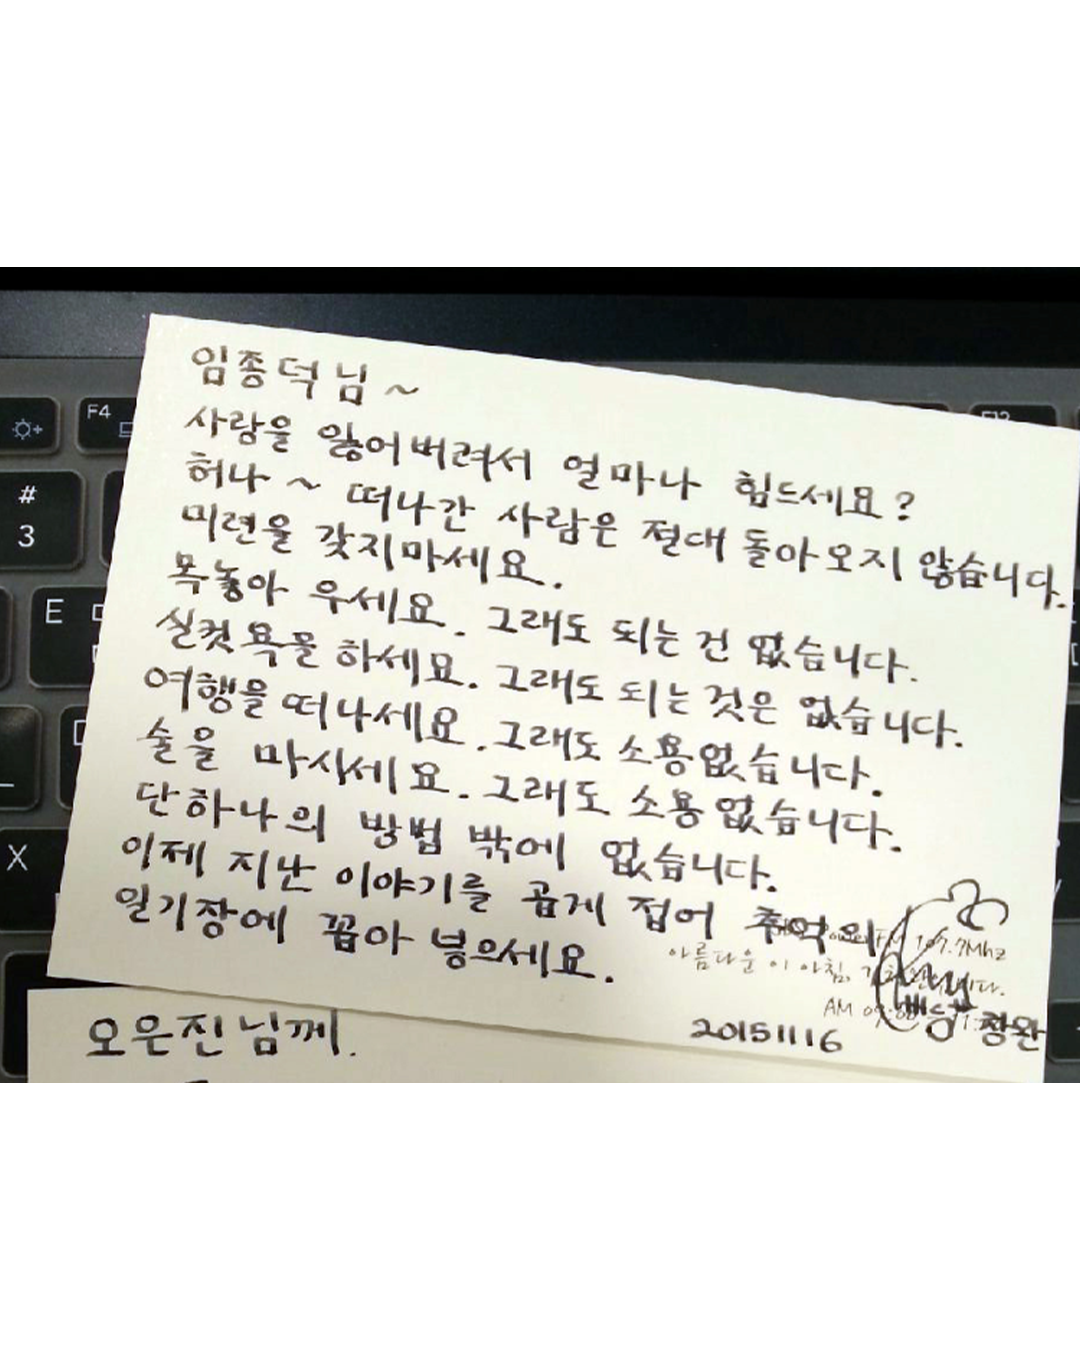 F4
F12
#
3
E
X
임종덕님~
사랑을 잃어버려서 얼마나 힘드세요?
허나~ 떠나간 사람은 절대 돌아오지 않습니다.
미련을 갖지마세요.
목놓아 우세요. 그래도 되는 건 없습니다.
실컷 욕을 하세요. 그래도 되는 것은 없습니다.
여행을 떠나세요. 그래도 소용없습니다.
술을 마시세요. 그래도 소용없습니다.
단 하나의 방법 밖에 없습니다.
이제 지난 이야기를 곱게 접어 추억의
일기장에 꼽아 넣으세요.
FM 107.7Mhz
아름다운 이 아침,
AM
20151116
창완
오은진님께.